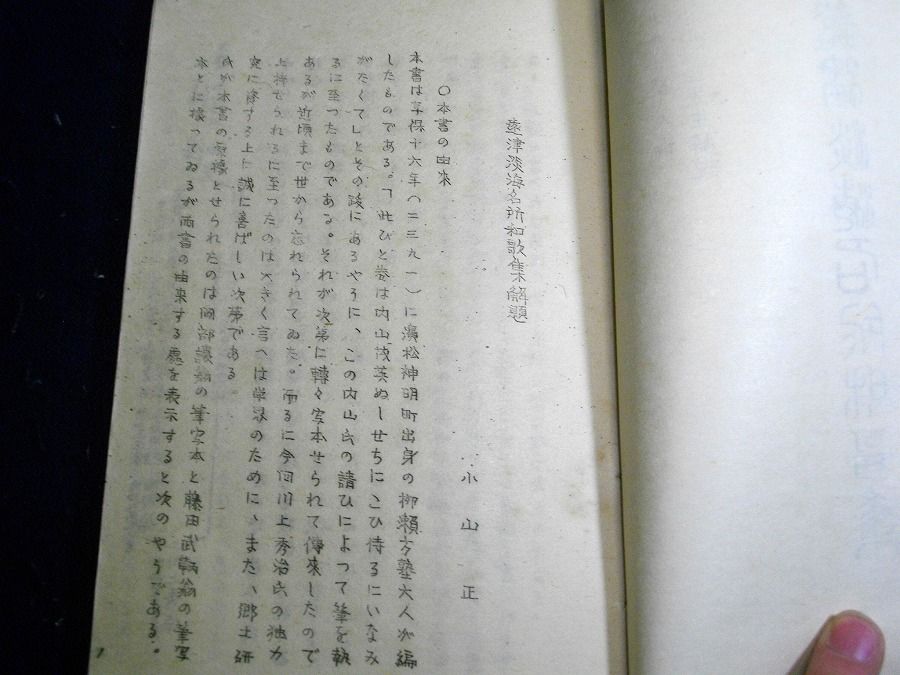 遠津淡海名所和歌集解題
小山正
○本書の由来
本書は享保十六年(二三九一)に濱松神明町出身の柳瀬方塾大人が編
したものである。「此ひと巻は内山茂英ぬしせちにこひ侍るにいなみ
がたくて」とその跋にあるやうに、この内山氏の請ひによつて筆を執
るに至つたものである。それが次第に轉々写本せられて傳来したので
あるが近頃まで世から忘れられてゐた。而るに今回川上秀治氏の独力
上梓せられるに至つたのは大きく言へは学界のために、また、郷土研
究に資する上に誠に喜ばしい次第である。
氏が本書の底據とせられたのは岡部譲翁の筆写本と藤田武翁の筆写
本とに據つてゐるが両書の由来する處を表示すると次のやうである。